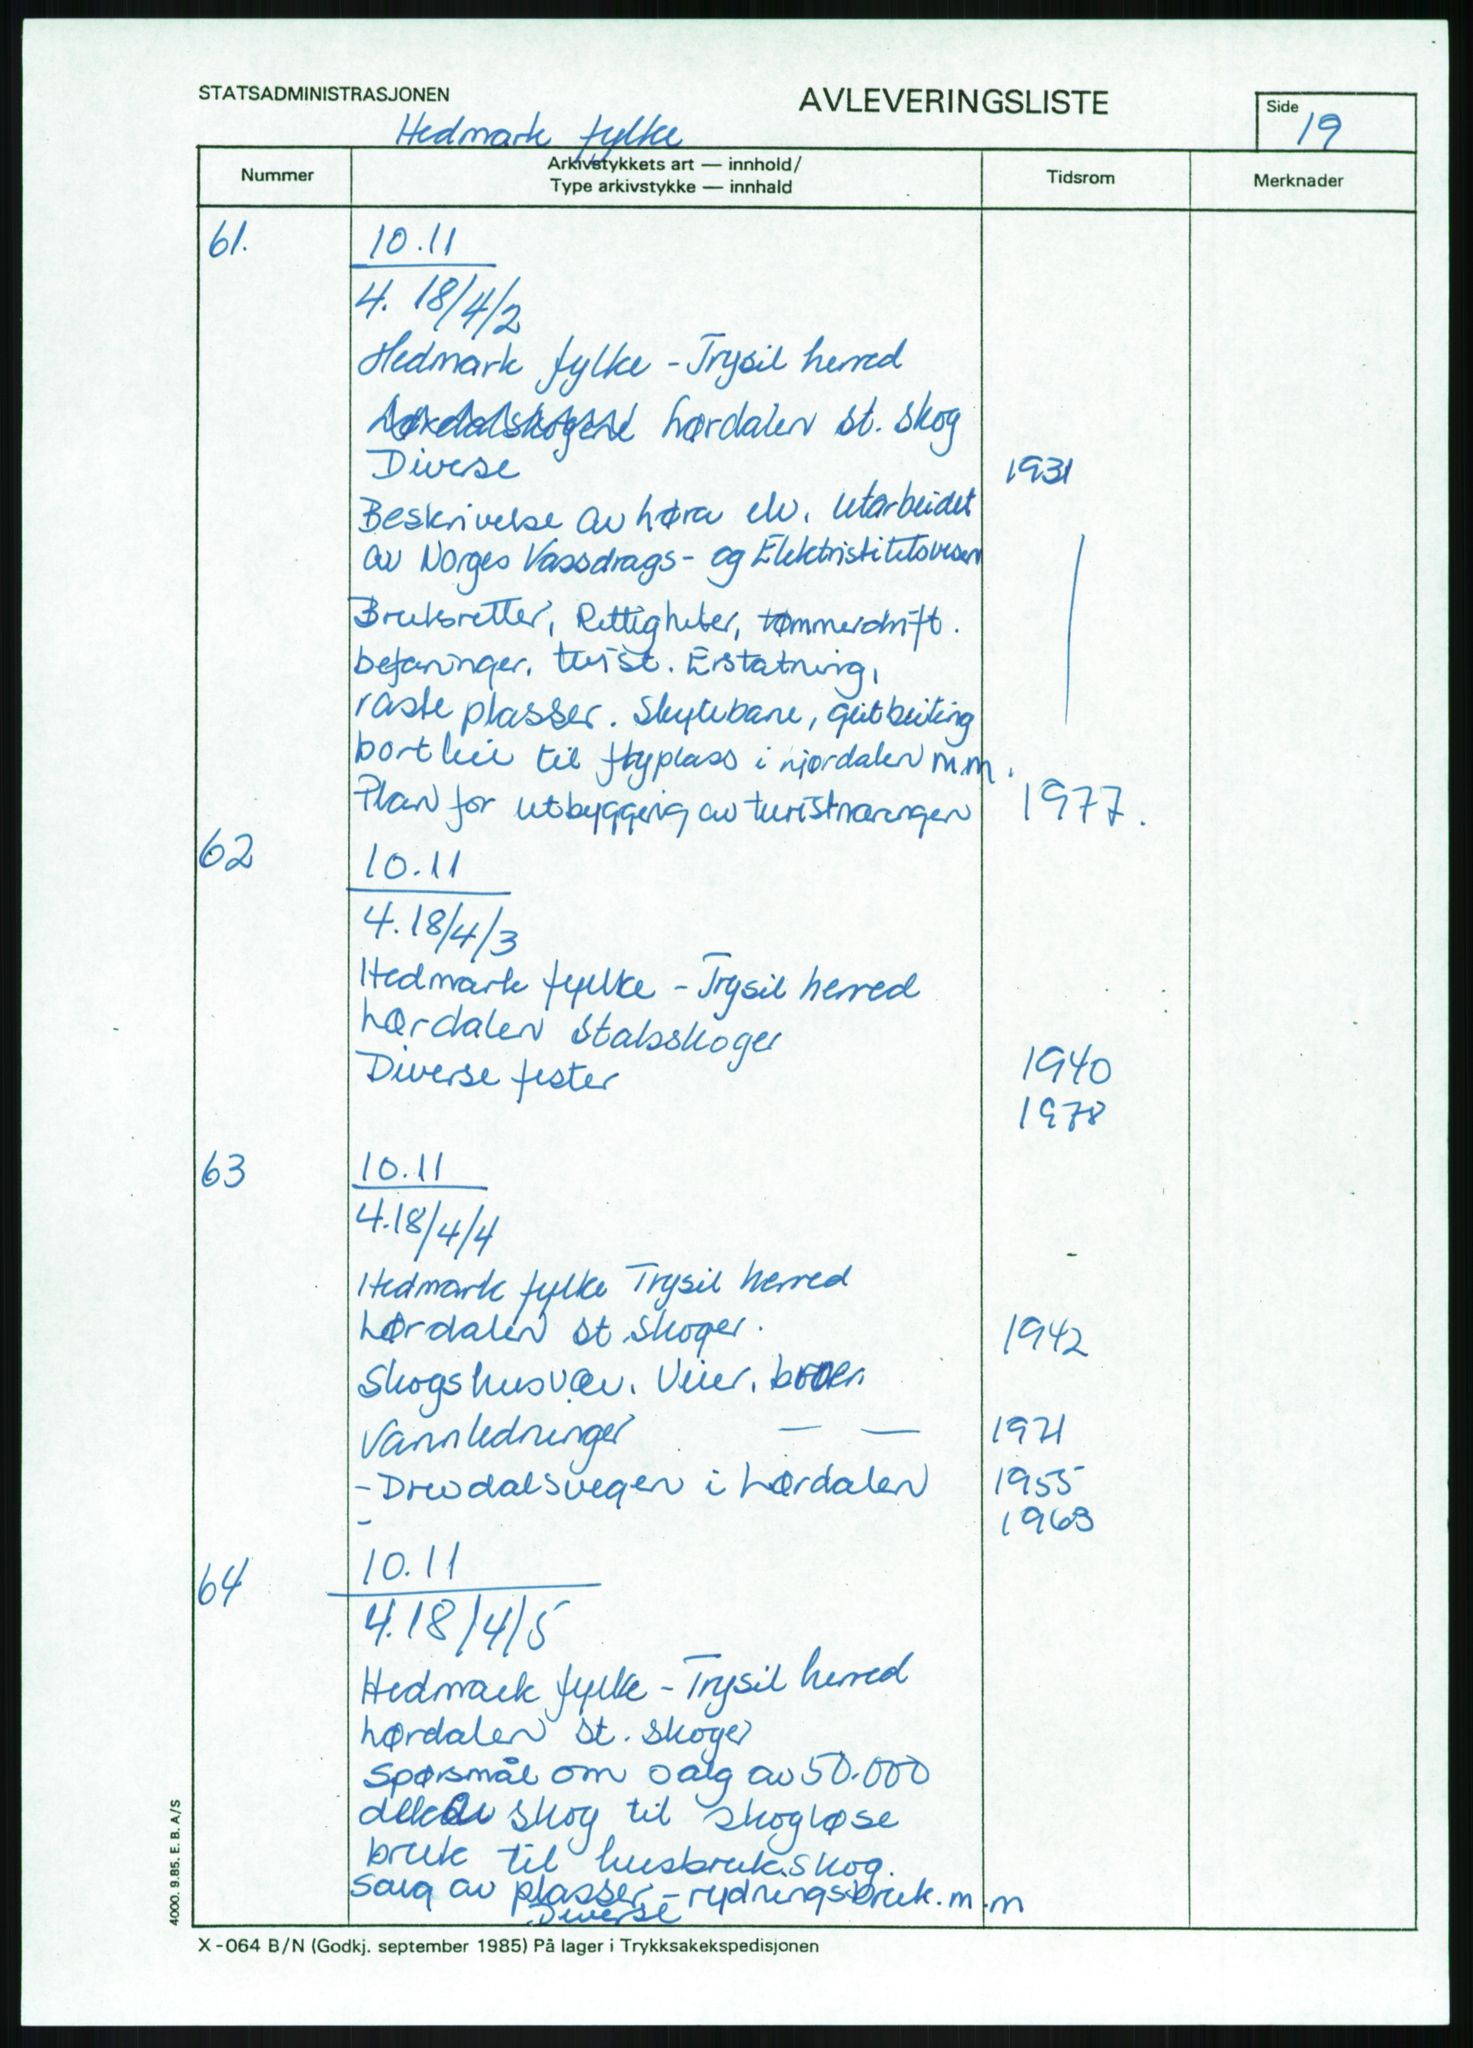 STATSADMINISTRASJONEN
AVLEVERINGSLISTE
Side 19
Hedmark fylke
Nummer
Arkivstykkets art — innhold/
Type arkivstykke — innhald
Tidsrom
Merknader
61. 10.11
4. 18/4/2
Hedmark fylke - Trysil herred
Lørdalen st. skog
Diverse 1931
Beskrivelse av Løra elv. Utarbeidet
av Norges Vassdrags- og Elektristitetsvesen
Bruksretter, Rettigheter, tømmerdrift.
befaringer. tvist. Erstatning,
rasteplasser. Skytebane, geitbeiting
bortleie til flyplass i njørdalen m.m.
Plan for utbyggerig av turistnæringen 1977.
62 10.11
4.18/4/3
Hedmark fylke - Trysil herred
Lørdalen statsskoger
Diverse fester 1940
1978
63 10.11
4.18/4/4
Hedmark fylke Trysil herred
Lørdalen st. skoger. 1942
Skogshusvær. Veier. broer.
Vannledninger — — 1971
- Drevdalsvegen i Lørdalen 1955
- 1963
64 10.11
4.18/4/5
Hedmark fylke - Trysil herred
Lørdalen st. skoger
Spørsmål om salg av 50.000
dekar skog til skogløse
bruk til husbruksskog.
Salg av plasser - rydningsbruk. m.m
Diverse
4000. 9.85. E. B. A/S
X-064 B/N (Godkj. september 1985) På lager i Trykksakekspedisjonen